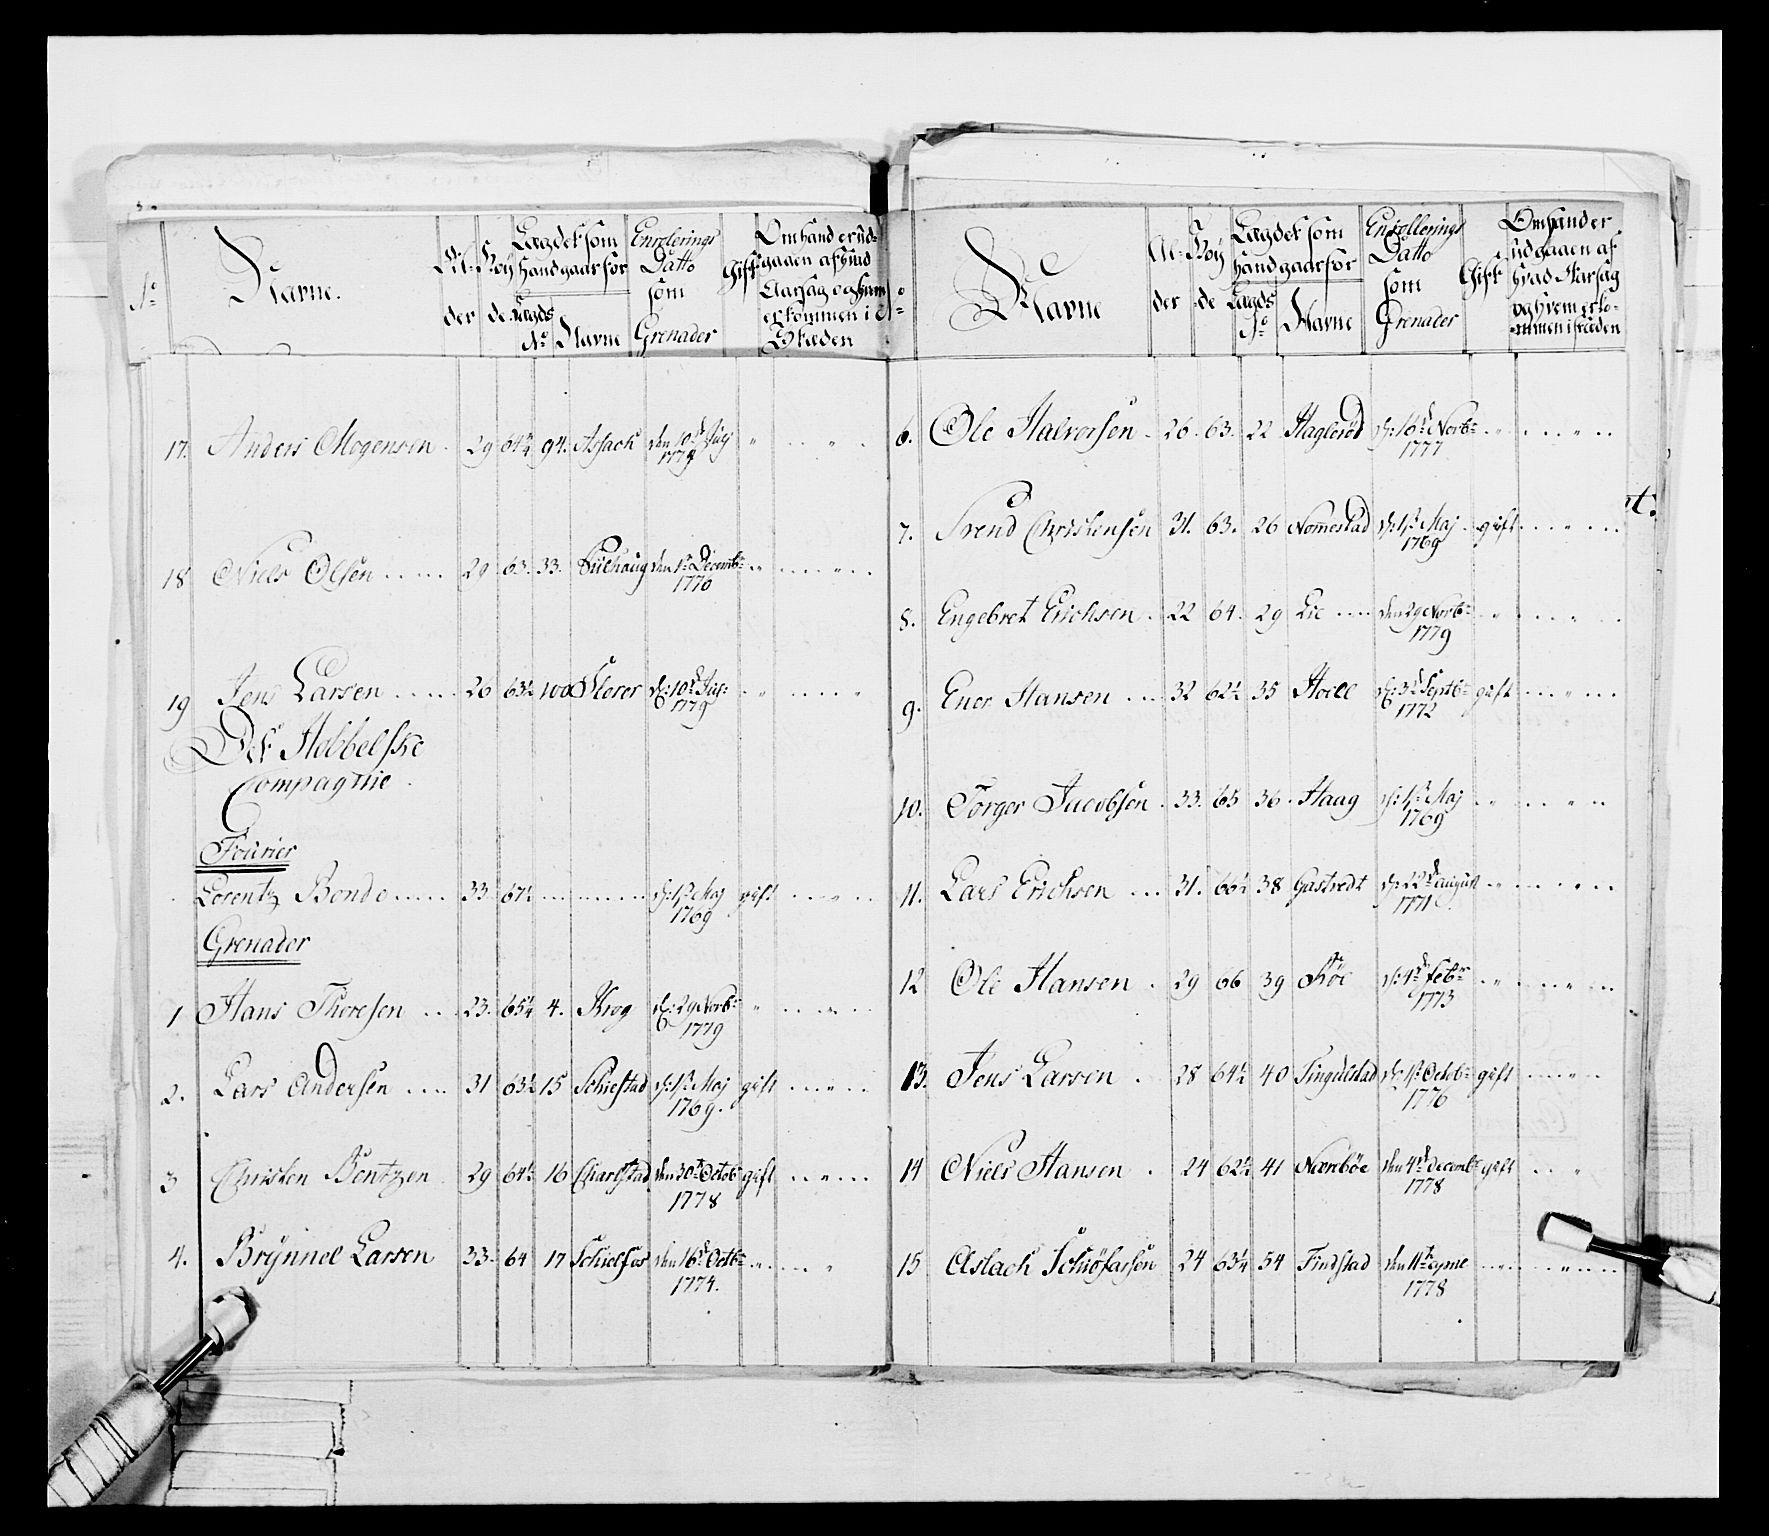 No Navne. Al-der Höyde Lægdet som hand gaar for Lægds No Navne Enrolerings Datto som Grenader Gift Om hand er ud-gaaen af hvad Aarsag og hvem er kommen i Stæden
17. Anders Mogensen. 29 64½ 94. Assack den 10de July
1779
18 Niels Olsen 29 63. 33. den 1te Decembr
1770
19 Jens Larsen 26 63½ 100 Storer d: 10de Jul:
1779
Det Hobbelske
Compagnie.
Fourier
Lorentz Bonde 33 67½ d: 1te Maj gift
1769
Grenader
1 Hans Thoresen 23. 65¼ 4. Krog d: 29 Novbr
1779
2. Lars Andersen 31 63½ 15 Schiestad d: 1te Maj gift
1769.
3 Christen Bentzen 29 64½ 16 Charlstad den 30te Octob gift
1778
4. Brynnel Larsen 33. 64 17 Schielfos den 16de Octbr
1774.
No Navne Al-der Höyde Lægdet som hand gaar for Lægds No Navne Enrollerings Datto som Grenader Gift Om hand er udgaaen af hvad Aarsag og hvem er ko-mmen i stæden
6. Ole Halvorsen 26. 63. 22 Haglerød d: 16de Novbr
1777
7. Svend Christensen 31. 63. 26 Nomestad d: 1te Maj gift
1769
8. Engebret Erichsen 22 64. 29 Lie den 29 Novbr
1779
9. Ener Hansen 32 62½ 35 Hoell d: 3de Septbr gift
1772
10. Törger Jacobsen 33. 65 36. Haag d: 1te Maj
1769
11. Lars Erichsen 31. 66½ 38 Gastvedt d: 22de august
1771
12 Ole Hansen 29 66 39 Röe d: 4de Febr
1773
13. Jens Larsen 28 64½ 40 Tingelstad d: 1te Octobr gift
1776
14 Niels Hansen 24 62½ 41 Nærebøe den 4de decembr gift
1778
15 Aslach Schiöfarsen 24 63¼ 54 Findstad den 11te
1778